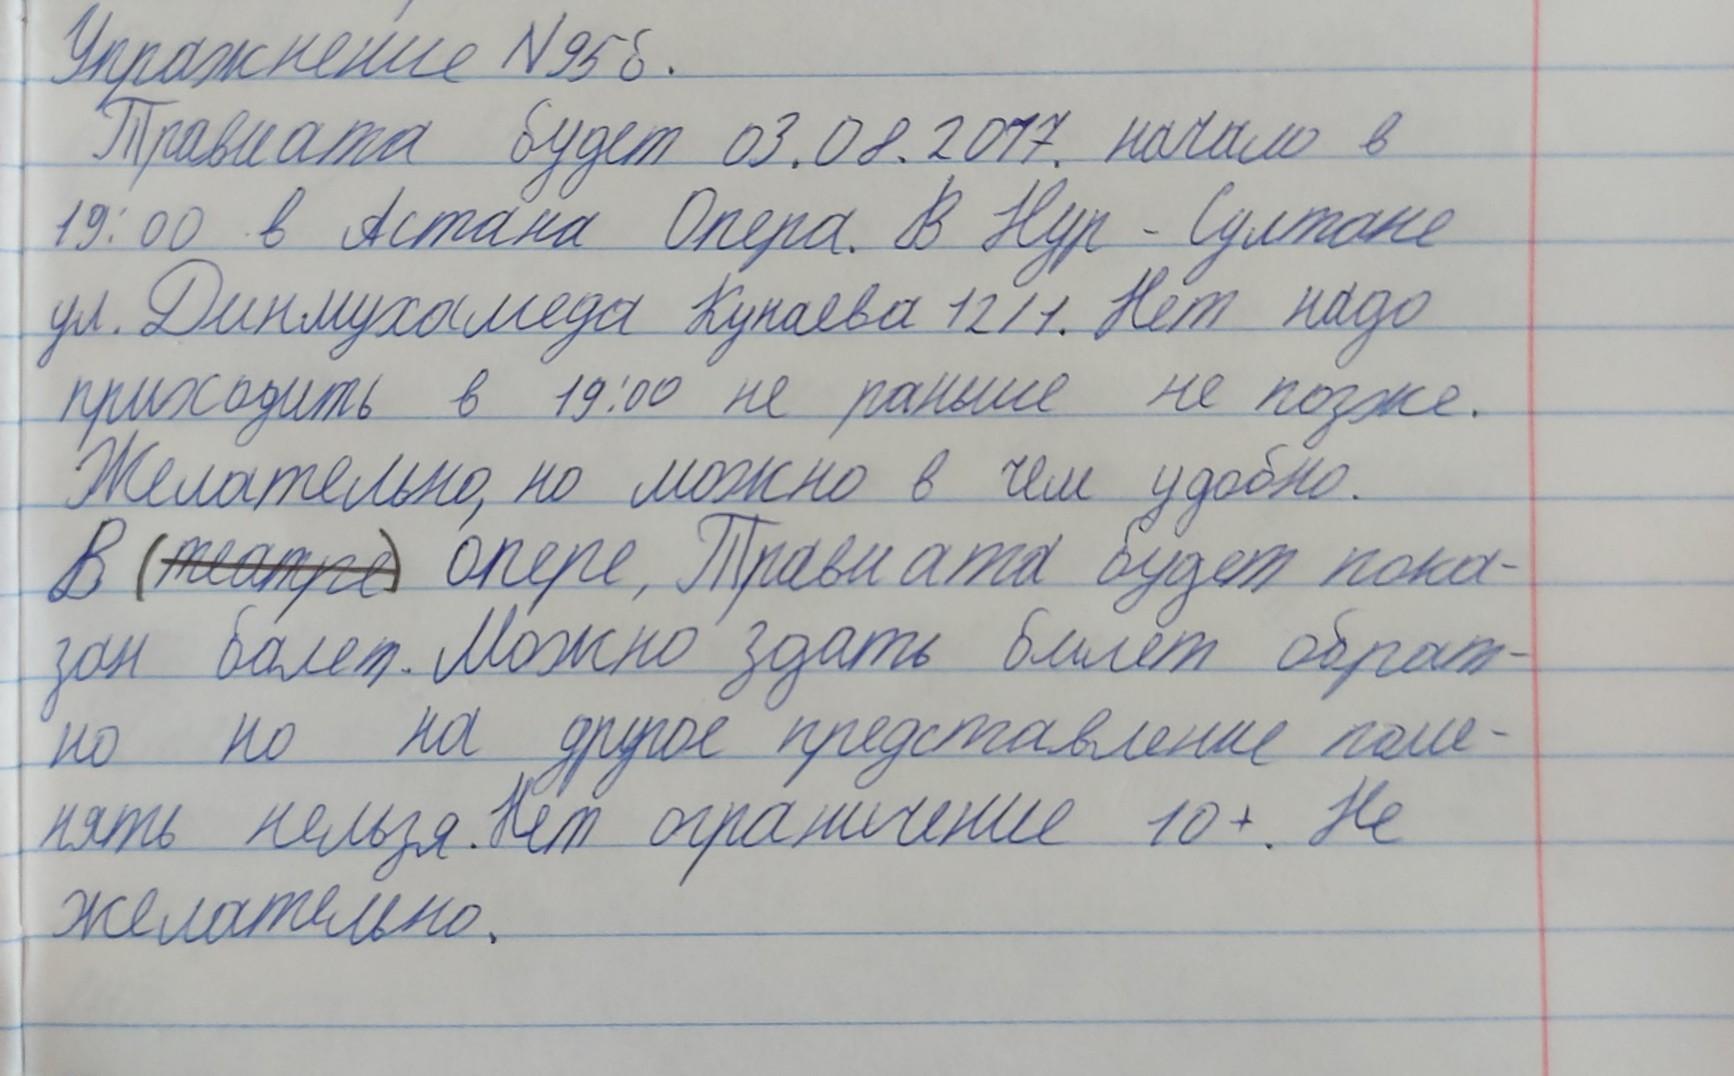 Упражнение N95б.
Травиата будет 03.08.2017. начало в
19:00 в Астана Опера. В Нур - Султане
ул. Динмухамеда Кунаева 12/1. Нет надо
приходить в 19:00 не раньше не позже.
Желательно, но можно в чем удобно.
В (театре) опере, Травиата будет пока-
зан балет. Можно здать билет обрат-
но но на другое представление поме-
нять нельзя. Нет ограничение 10+. Не
желательно.